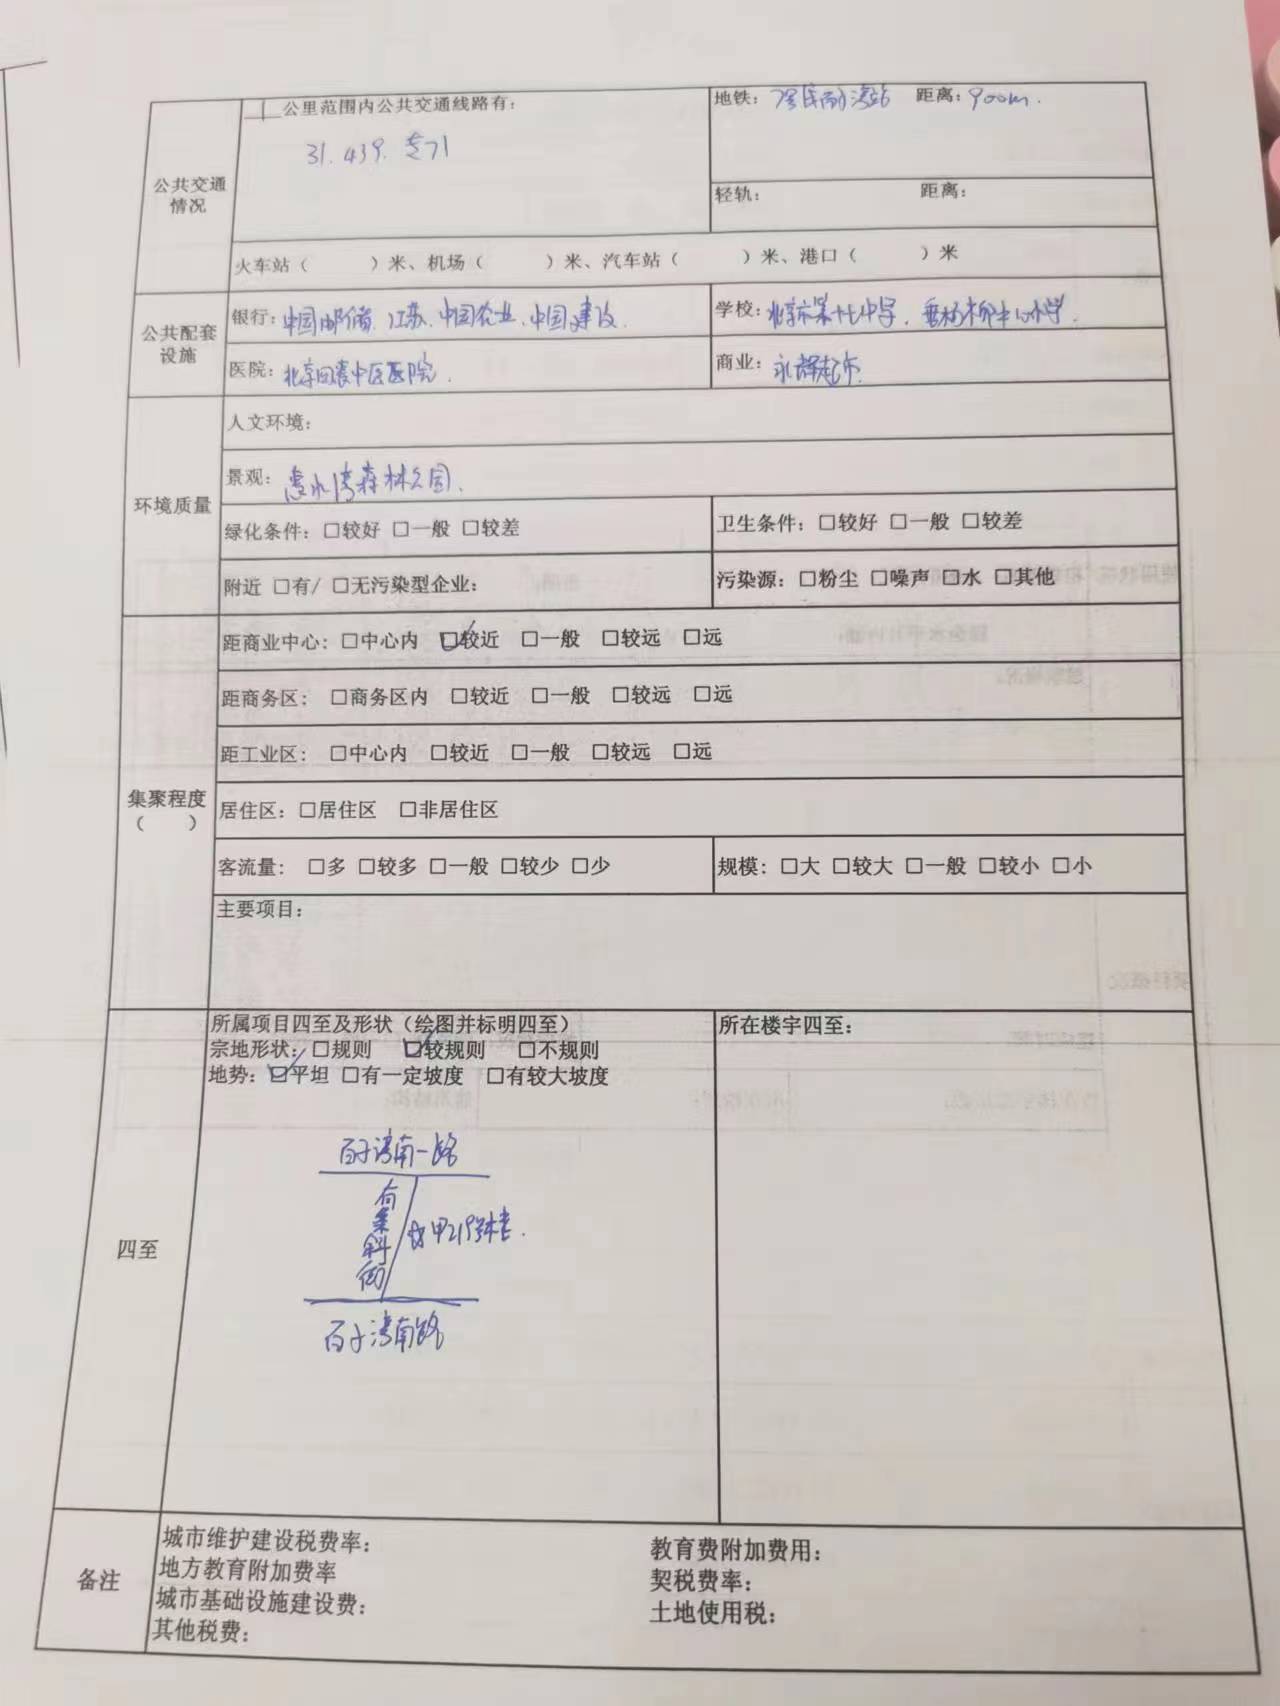 一公里范围内公共交通线路有：
31. 439. 专71
地铁： 7号 站 距离：900m.
轻轨： 距离：
公共交通
情况
火车站（ ）米、机场（ ）米、汽车站（ ）米、港口（ ）米
公共配套
设施
银行：中国邮储、江苏、中国农业、中国建设.
学校：北京市第十七中学、垂杨柳中心小学.
医院： 中医医院.
商业：永辉超市.
环境质量
人文环境：
景观： 森林公园.
绿化条件：□较好 □一般 □较差
卫生条件：□较好 □一般 □较差
附近 □有/ □无污染型企业：
污染源：□粉尘 □噪声 □水 □其他
集聚程度
（ ）
距商业中心：□中心内 ☑较近 □一般 □较远 □远
距商务区： □商务区内 □较近 □一般 □较远 □远
距工业区： □中心内 □较近 □一般 □较远 □远
居住区：□居住区 □非居住区
客流量： □多 □较多 □一般 □较少 □少
规模：□大 □较大 □一般 □较小 □小
主要项目：
四至
所属项目四至及形状（绘图并标明四至）
宗地形状：□规则 ☑较规则 □不规则
地势：☑平坦 □有一定坡度 □有较大坡度
百子湾南一路
甲219号楼.
百子湾南路
所在楼宇四至：
备注
城市维护建设税费率：
教育费附加费用：
地方教育附加费率
契税费率：
城市基础设施建设费：
土地使用税：
其他税费：